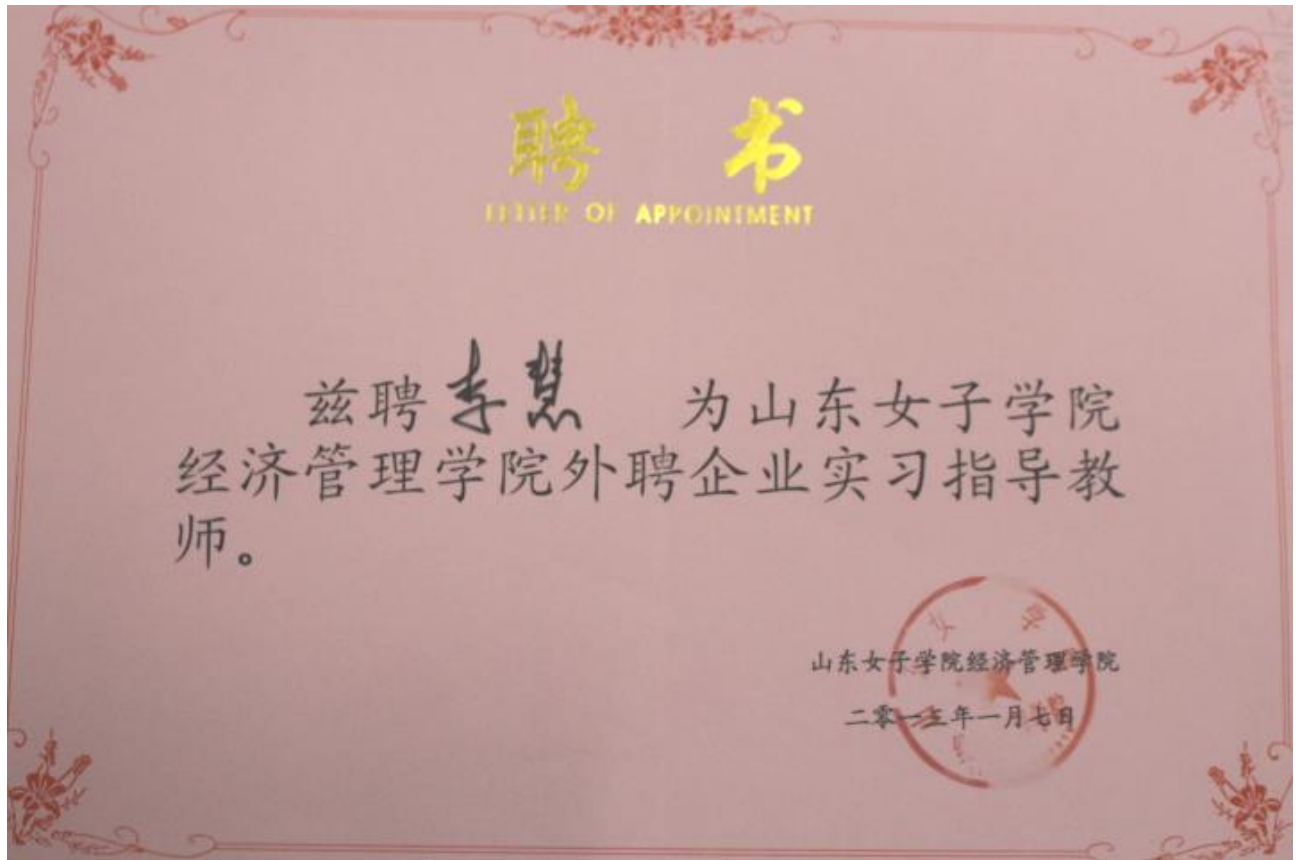 聘 书
LETTER OF APPOINTMENT
兹聘李慧 为山东女子学院
经济管理学院外聘企业实习指导教
师。
山东女子学院经济管理学院
二零一三年一月七日